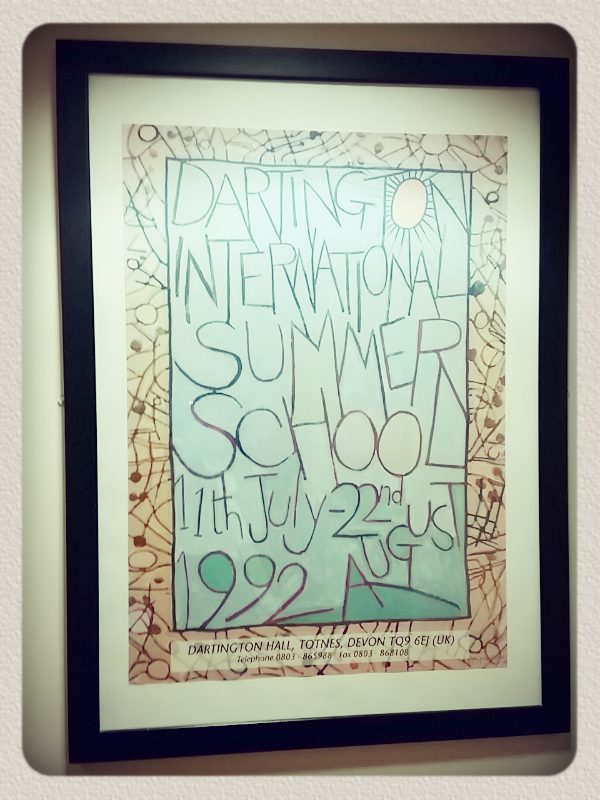 DARTINGTON
INTERNATIONAL
SUMMER
SCHOOL
11th July - 22nd
1992 AUGUST
DARTINGTON HALL, TOTNES, DEVON TQ9 6EJ (UK)
Telephone 0803 - 865988 Fax 0803 - 868108